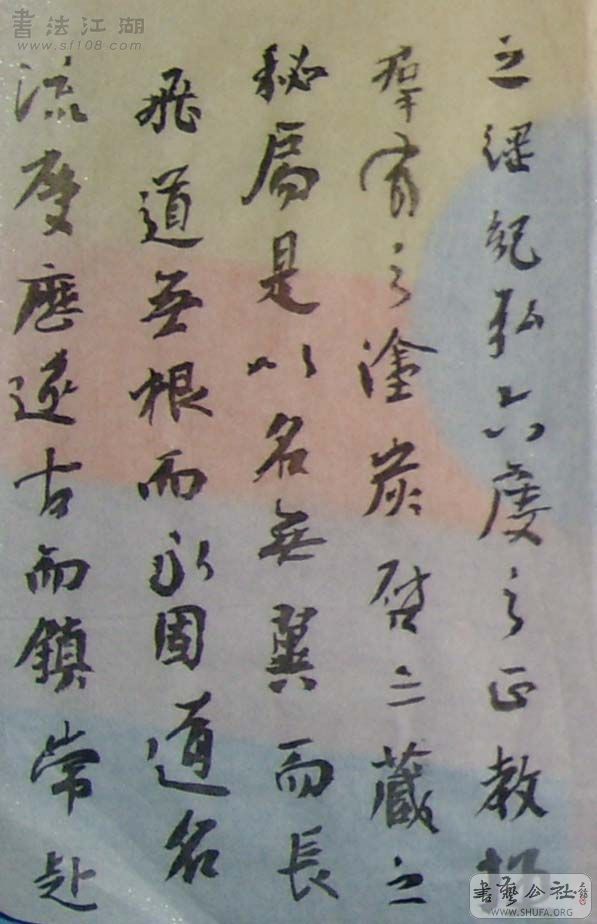 之綱紀弘六度之正教拯
群有之塗炭啓三藏之
秘扃是以名無翼而長
飛道無根而永固道名
流慶歷遂古而鎮常赴
書法江湖
www.sf108.com
書藝公社
WWW.SHUFA.ORG